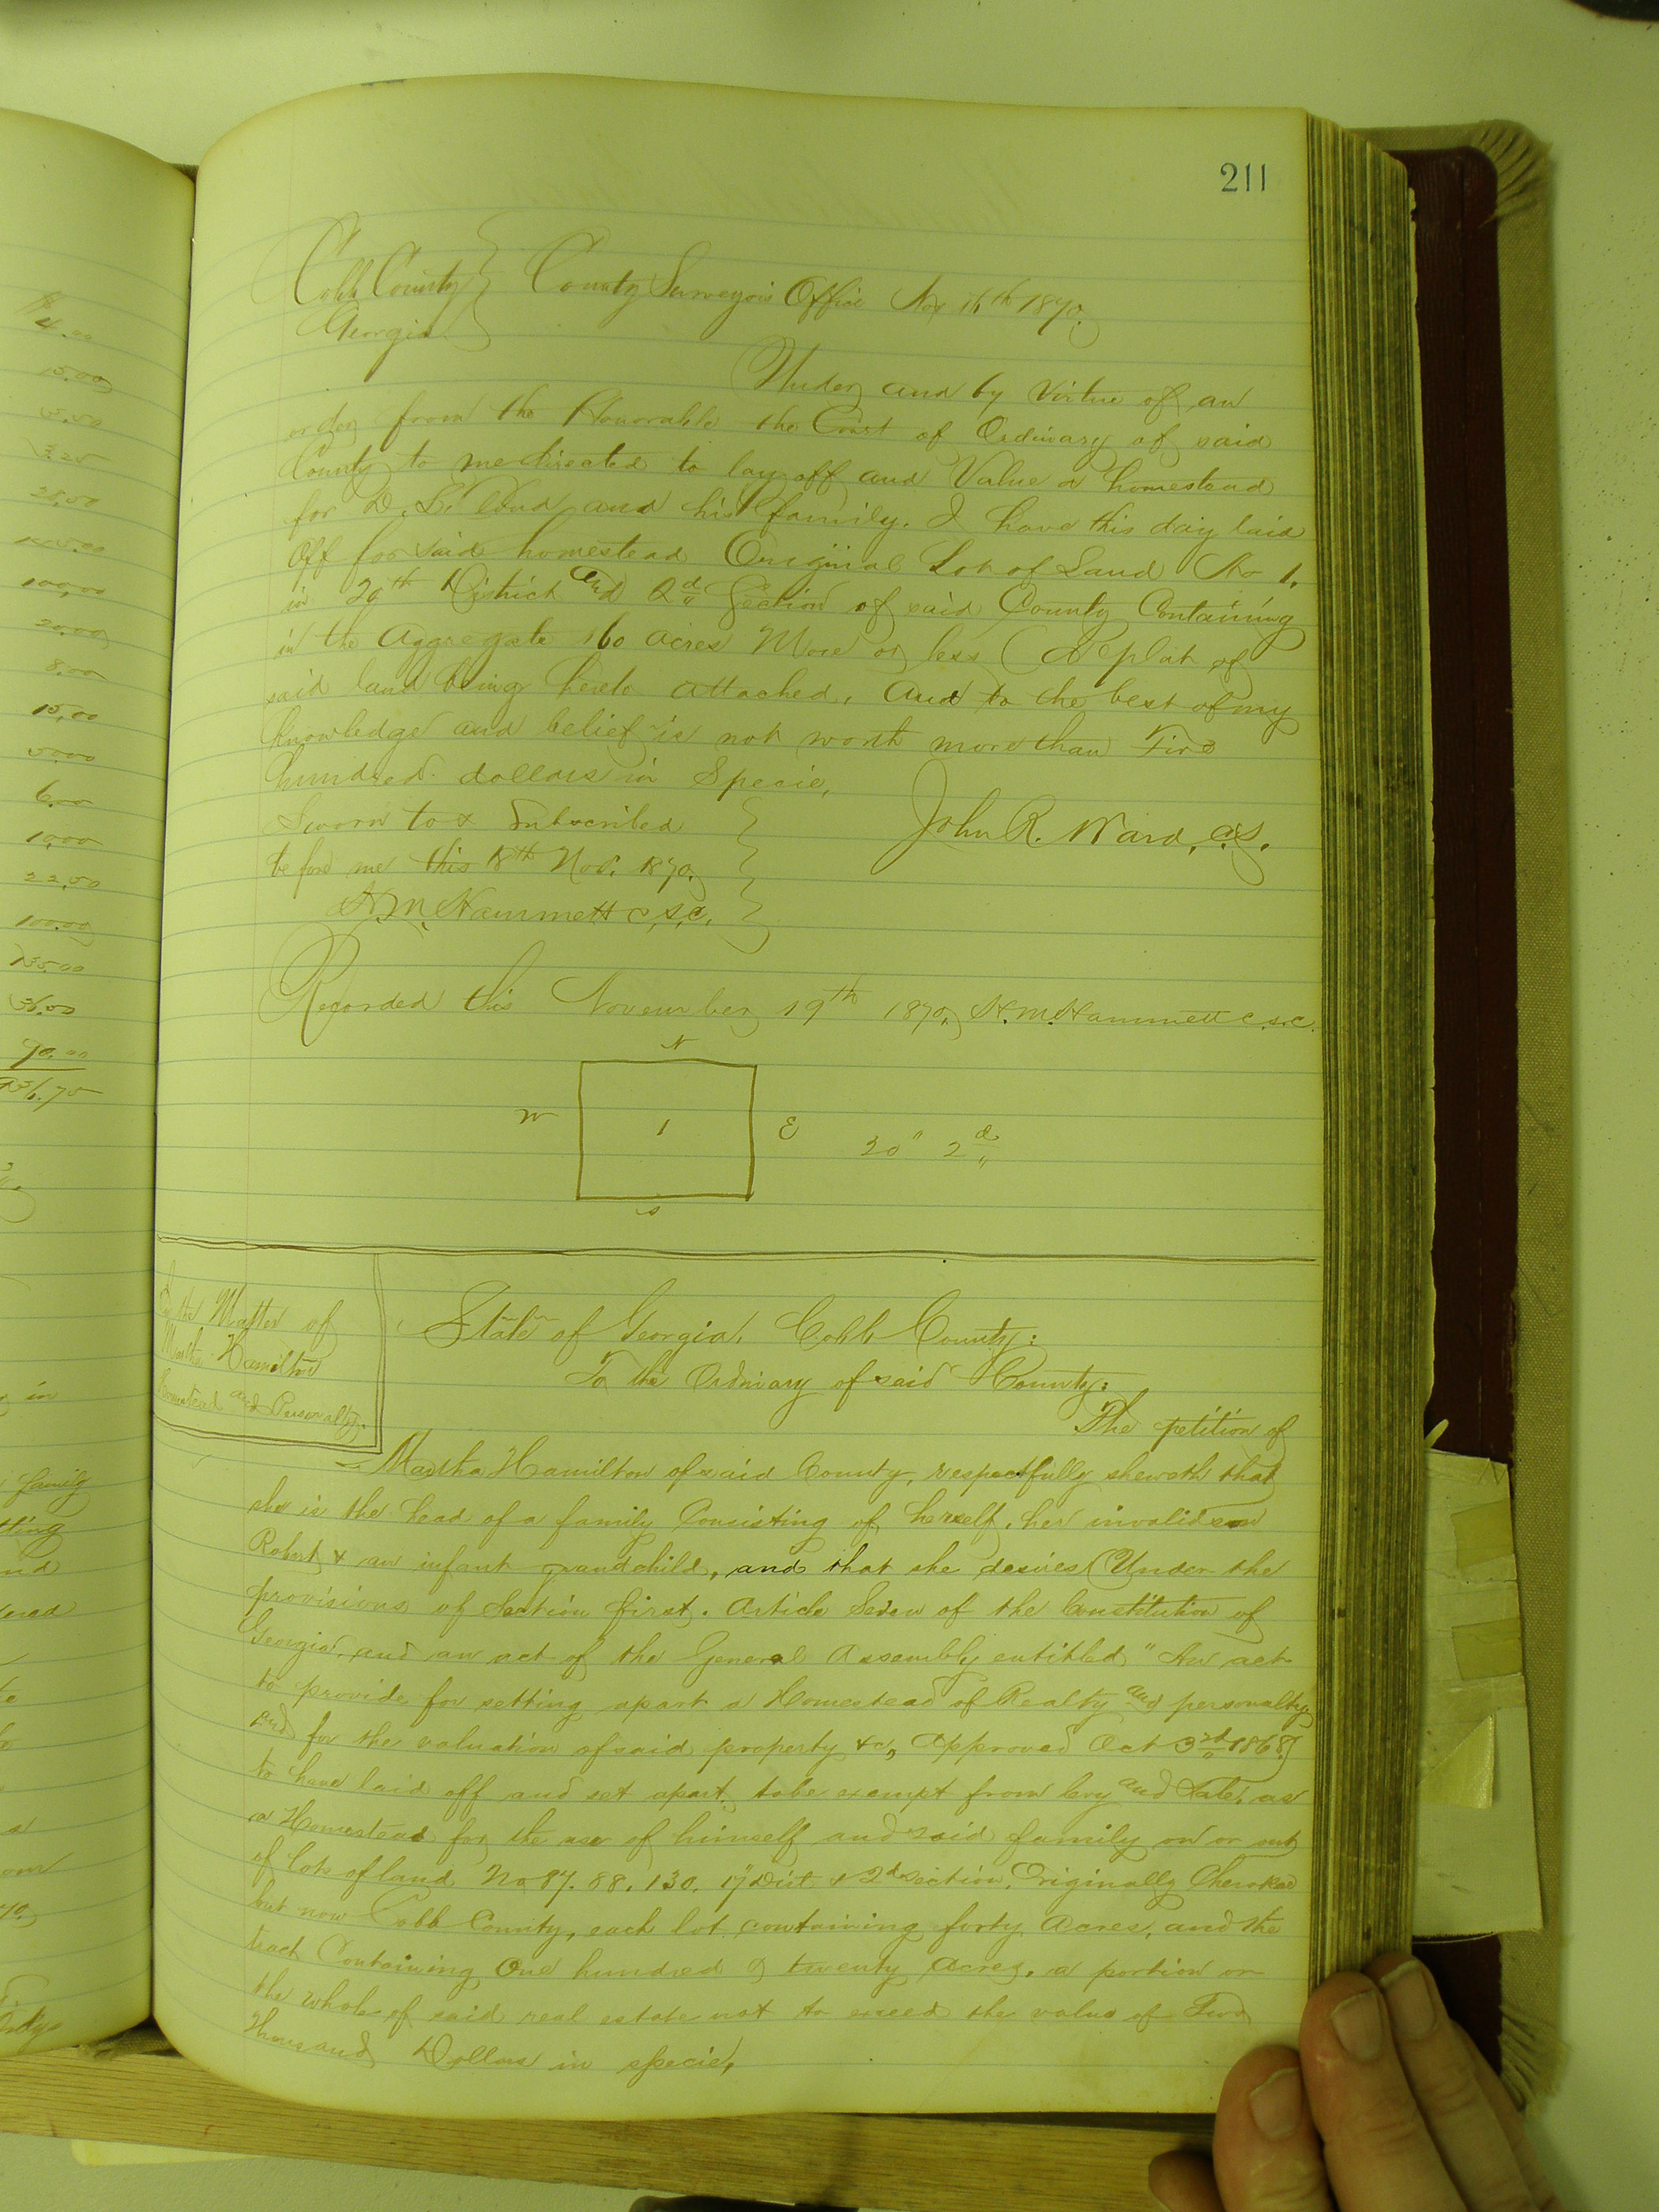 211
Cobb County } County Surveyors Office Nov 16th 1870.
Georgia }
Under and by virtue of an
order from the Honorable the Court of Ordinary of said
County to me directed to lay off and Value a homestead
for D. B. and his family. I have this day laid
Off for said homestead Original Lot of Land No 1.
in 20th District and 2d Section of said County Containing
in the Aggregate 160 acres More or less (A plat of
said land being hereto attached, And to the best of my
knowledge and belief is not worth more than Five
hundred dollars in Specie,
Sworn to & Subscribed } John R. Ward, C.S.
before me this 18th Nov. 1870, }
H. M. Hammett C.S.C. }
Recorded this November 19th 1870, H. M. Hammett C.S.C.
N
W 1 E 20" 2d
S
In the Matter of
Martha Hamilton
Homestead and Personalty.
State of Georgia, Cobb County:
To the Ordinary of said County:
The petition of
Martha Hamilton of said County, respectfully sheweth that
she is the head of a family Consisting of herself, her invalid son
Robert & an infant grandchild, and that she desires (Under the
provisions of Section first. Article Seven of the Constitution of
Georgia, and an act of the General Assembly entitled "An act
to provide for setting apart a Homestead of Realty and personalty
and for the valuation of said property &c, Approved Oct 3rd 1868)
to have laid off and set apart, to be exempt from levy and Sale, as
a Homestead for the use of himself and said family on or out
of lots of land No 87. 88. 130. 17" Dist & 2d Section, Originally Cherokee
but now Cobb County, each lot containing forty Acres, and the
tract Containing One hundred & twenty Acres, a portion or
the whole of said real estate not to exceed the value of Two
Thousand Dollars in specie,
4.00
15.00
5.50
3.25
28.50
100,00
20,00
8.00
15,00
5.00
6.00
10,00
22,50
100.00
135.00
36.00
90.00
in
family
and